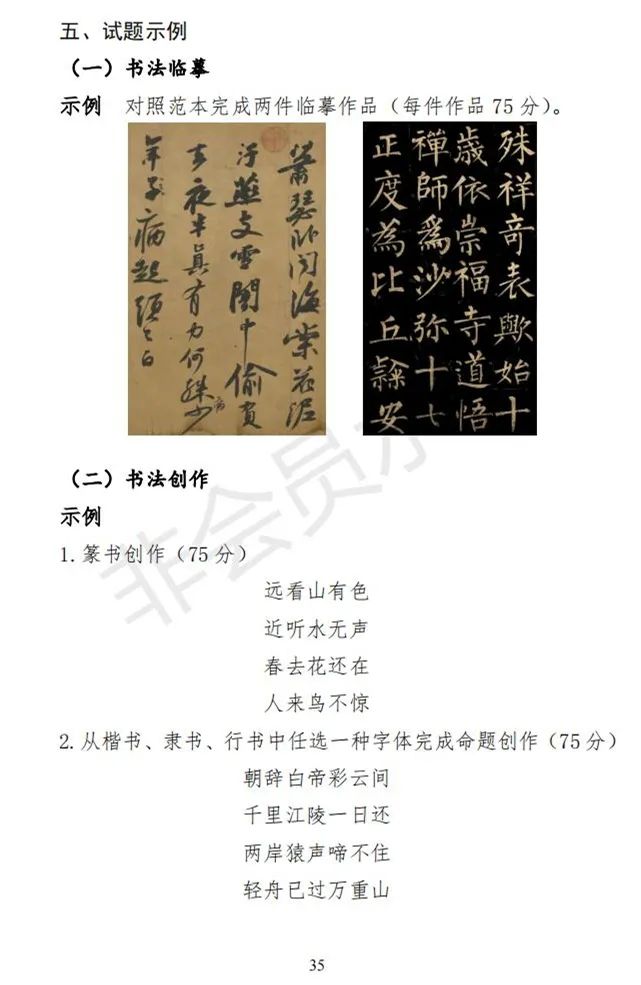 五、试题示例
（一）书法临摹
示例 对照范本完成两件临摹作品（每件作品 75 分）。
蕭瑟卧闻海棠花泥
汙燕支雪闇中偷負
去夜半真有力何殊少
病
年子病起須已白
殊祥奇表歟始十
歲依崇福寺道悟
禪師爲沙弥十七
正度為比丘隸安
（二）书法创作
示例
1.篆书创作（75 分）
远看山有色
近听水无声
春去花还在
人来鸟不惊
2.从楷书、隶书、行书中任选一种字体完成命题创作（75 分）
朝辞白帝彩云间
千里江陵一日还
两岸猿声啼不住
轻舟已过万重山
35
非会员水